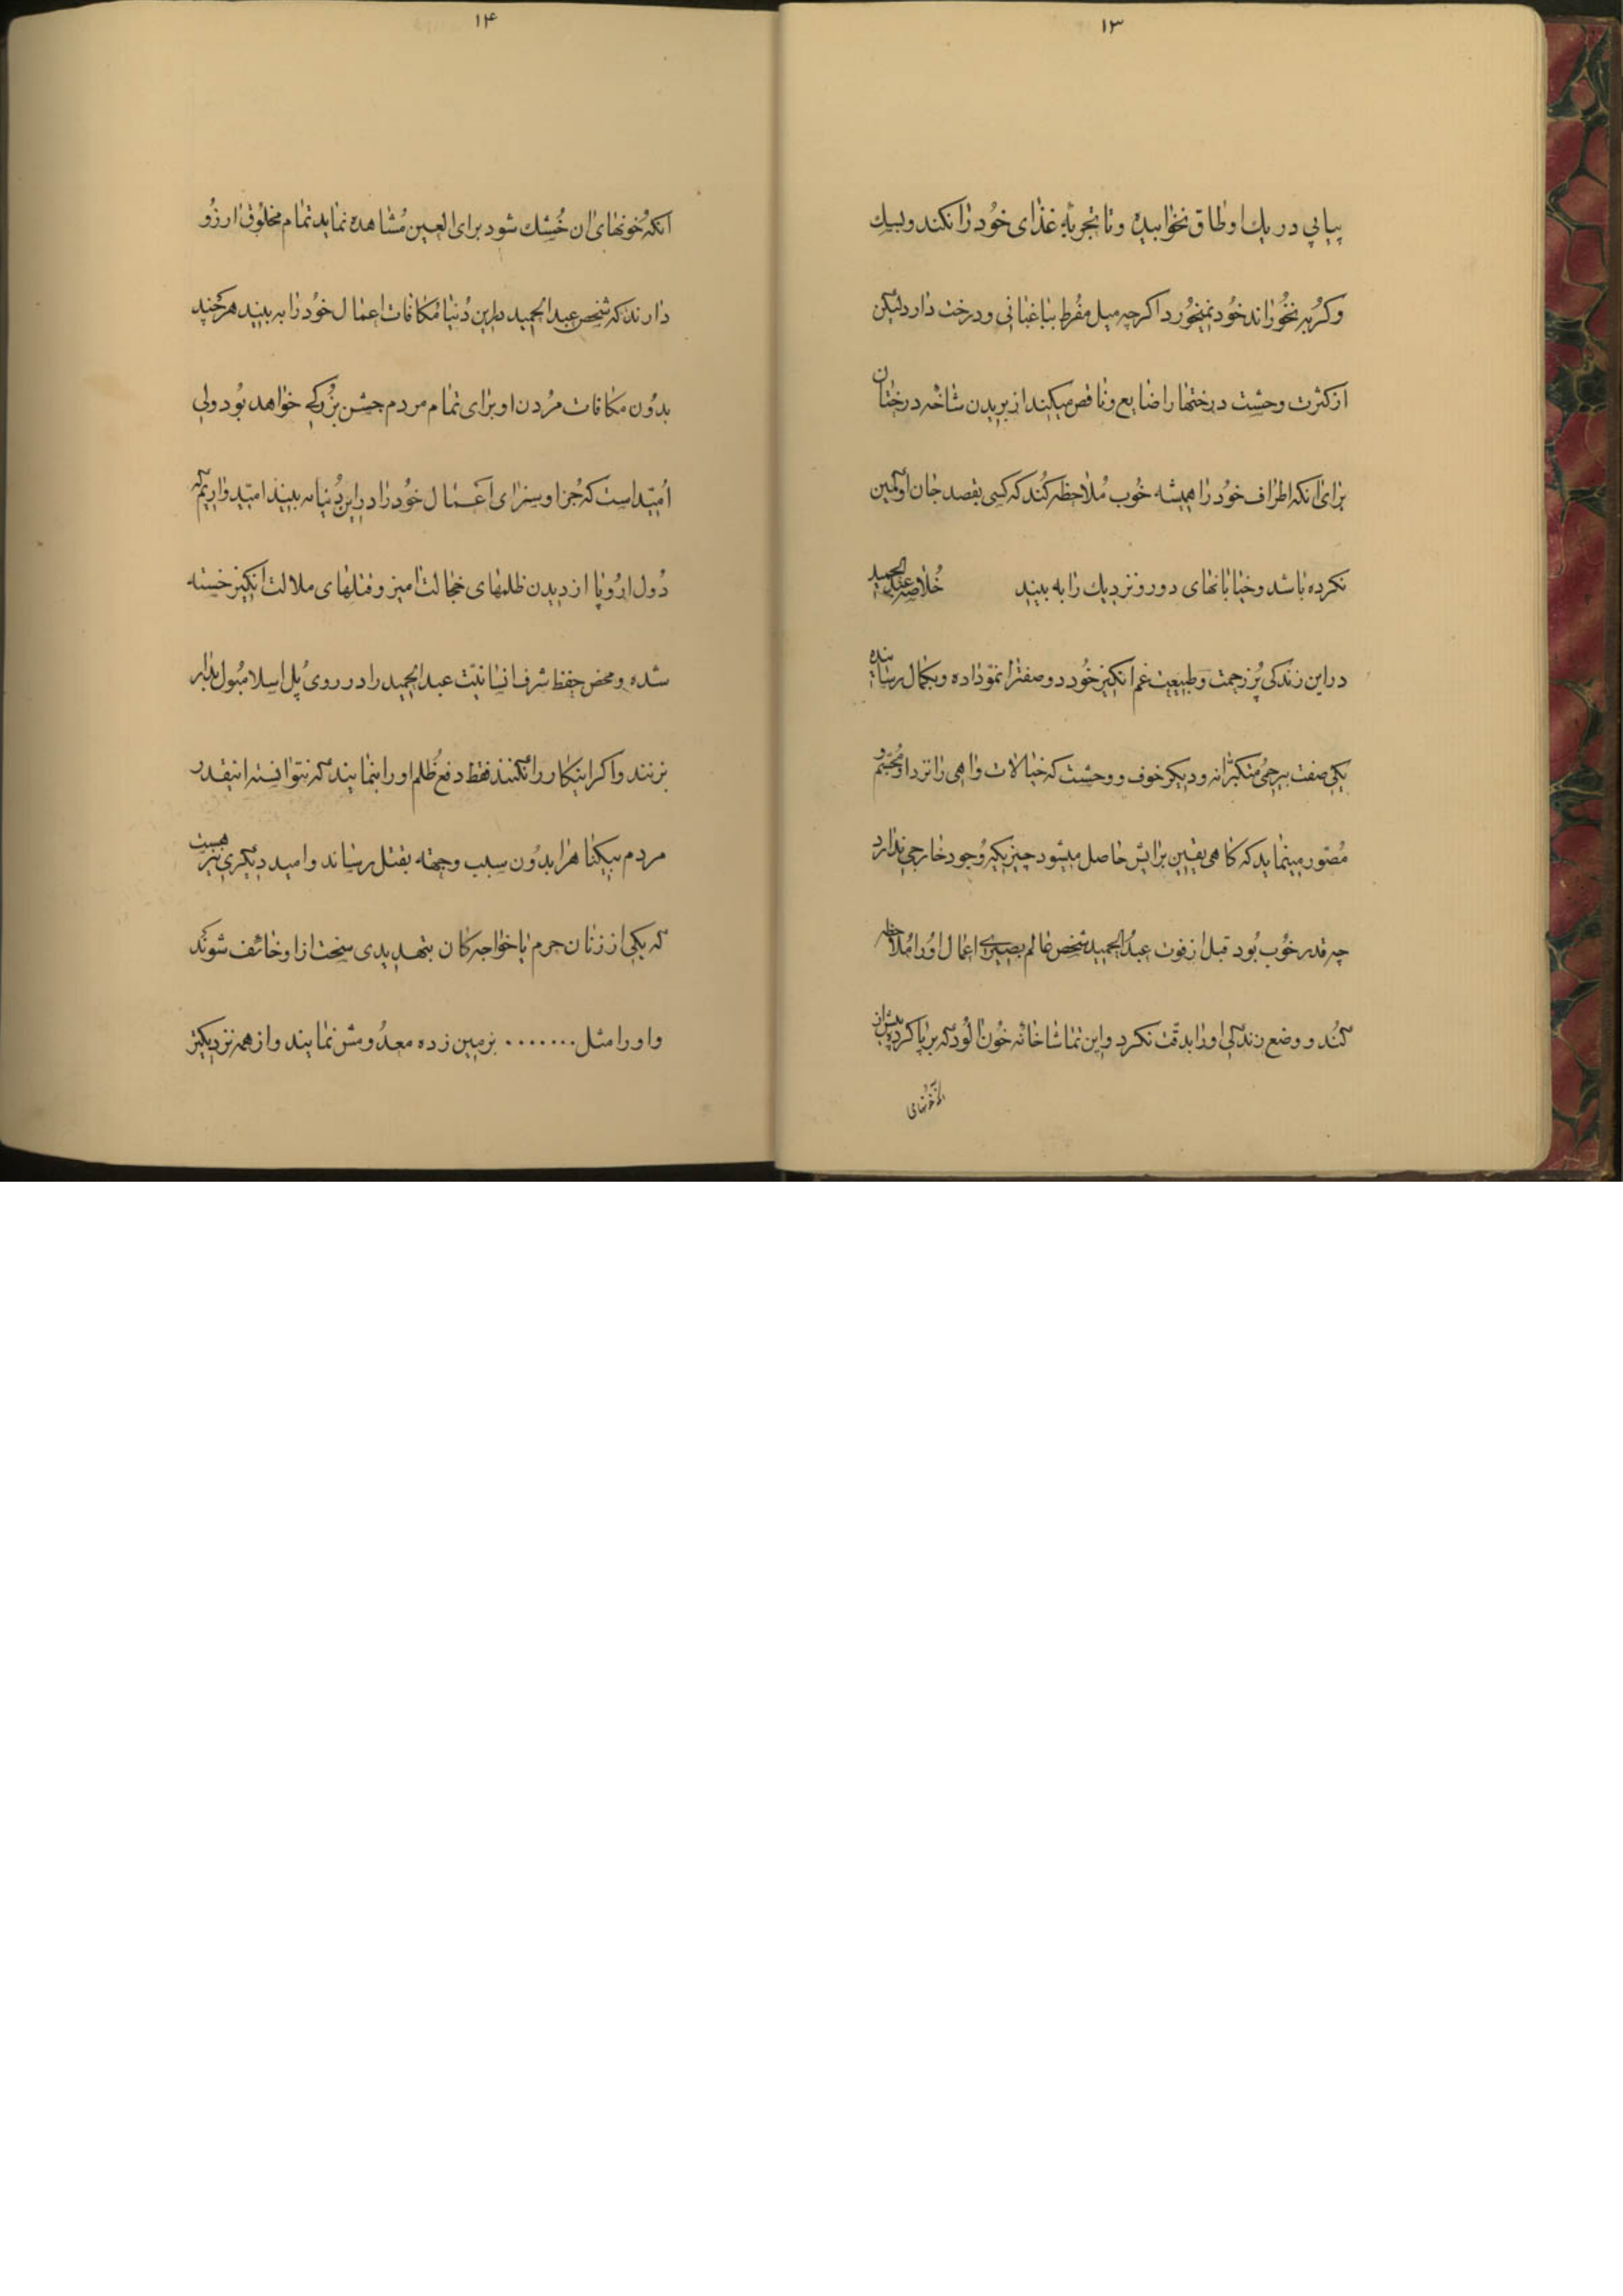 ۱۳
پیاپی در یك اوطاق نخوابیده و تا تجربۀ غذای خُود را نکند و بسك
و کُربه نخُوراند خُود نمیخُورد اکرچه میل مفُرط بباغبانی و درخت دارد لیکن
از کثرت وحشت درختها را ضایع و ناقص میکند از بریدن شاخه درختان
برای انکه اطراف خُود را همیشه خُوب مُلاحظه کُند که کسی بقصد جان او کمین
نکرده باشد و خیابانهای دور و نزدیك را به بیند خُلاصه عبدالحمید
در این زندکی پُر زحمت و طبیعت غم انکیز خُود دو صفت را نموّ داده و بکمال رسانیده
یکی صفت بیرحمی مُتکبرّانه و دیکر خوف و وحشت که خیالات واهی را نزد او مجُسّم و
مُصّور مینماید که کاهی یقین برایش حاصل میشود چیزیکه وُجود خارجی ندارد
چه قدر خُوب بُود قبل از فوت عبدُالحمید شخص عالم بصیری اعمال اورا مُلاحظه
کُند و وضع زندکی اورا بدقّت نکرد و این تماشاخانه خُون الُود که برپا کرده پیش از
انکه خُونهای
۱۴
انکه خُونهای ان خُشك شود برای العین مُشاهده نماید تمام مخلوُق ارزُو
دارند که شخص عبدالحمید در این دُنیا مُکافات اعمال خُود را به بیند هر چند
بدُون مکافات مرُدن او برای تمام مردم جشن بزُرکی خواهد بُود ولی
امُیّد است که جُزا و سزای اعمال خُود را در این دُنیا به بیند امیّد واریم که
دُول ارُوپا از دیدن ظلمهای خجالت امیز و قتلهای ملالت انکیز خسته
شده و محض حفظ شرف انسانیّت عبدالحمید را در روی پُل اسلامبُول بدار
بزنند و اکر اینکار را نکنند فقط دفع ظُلم او را بنمایند که نتوانسته اینقدر
مردم بیکناه را بدُون سبب و جهته بقتل رساند و امید دیکری نیز هست
که یکی از زنان حرم یا خواجه کان بتهدیدی سخت از او خائف شوند
و او را مثل ....... بزمین زده معدُومش نمایند و از همه نزدیکتر